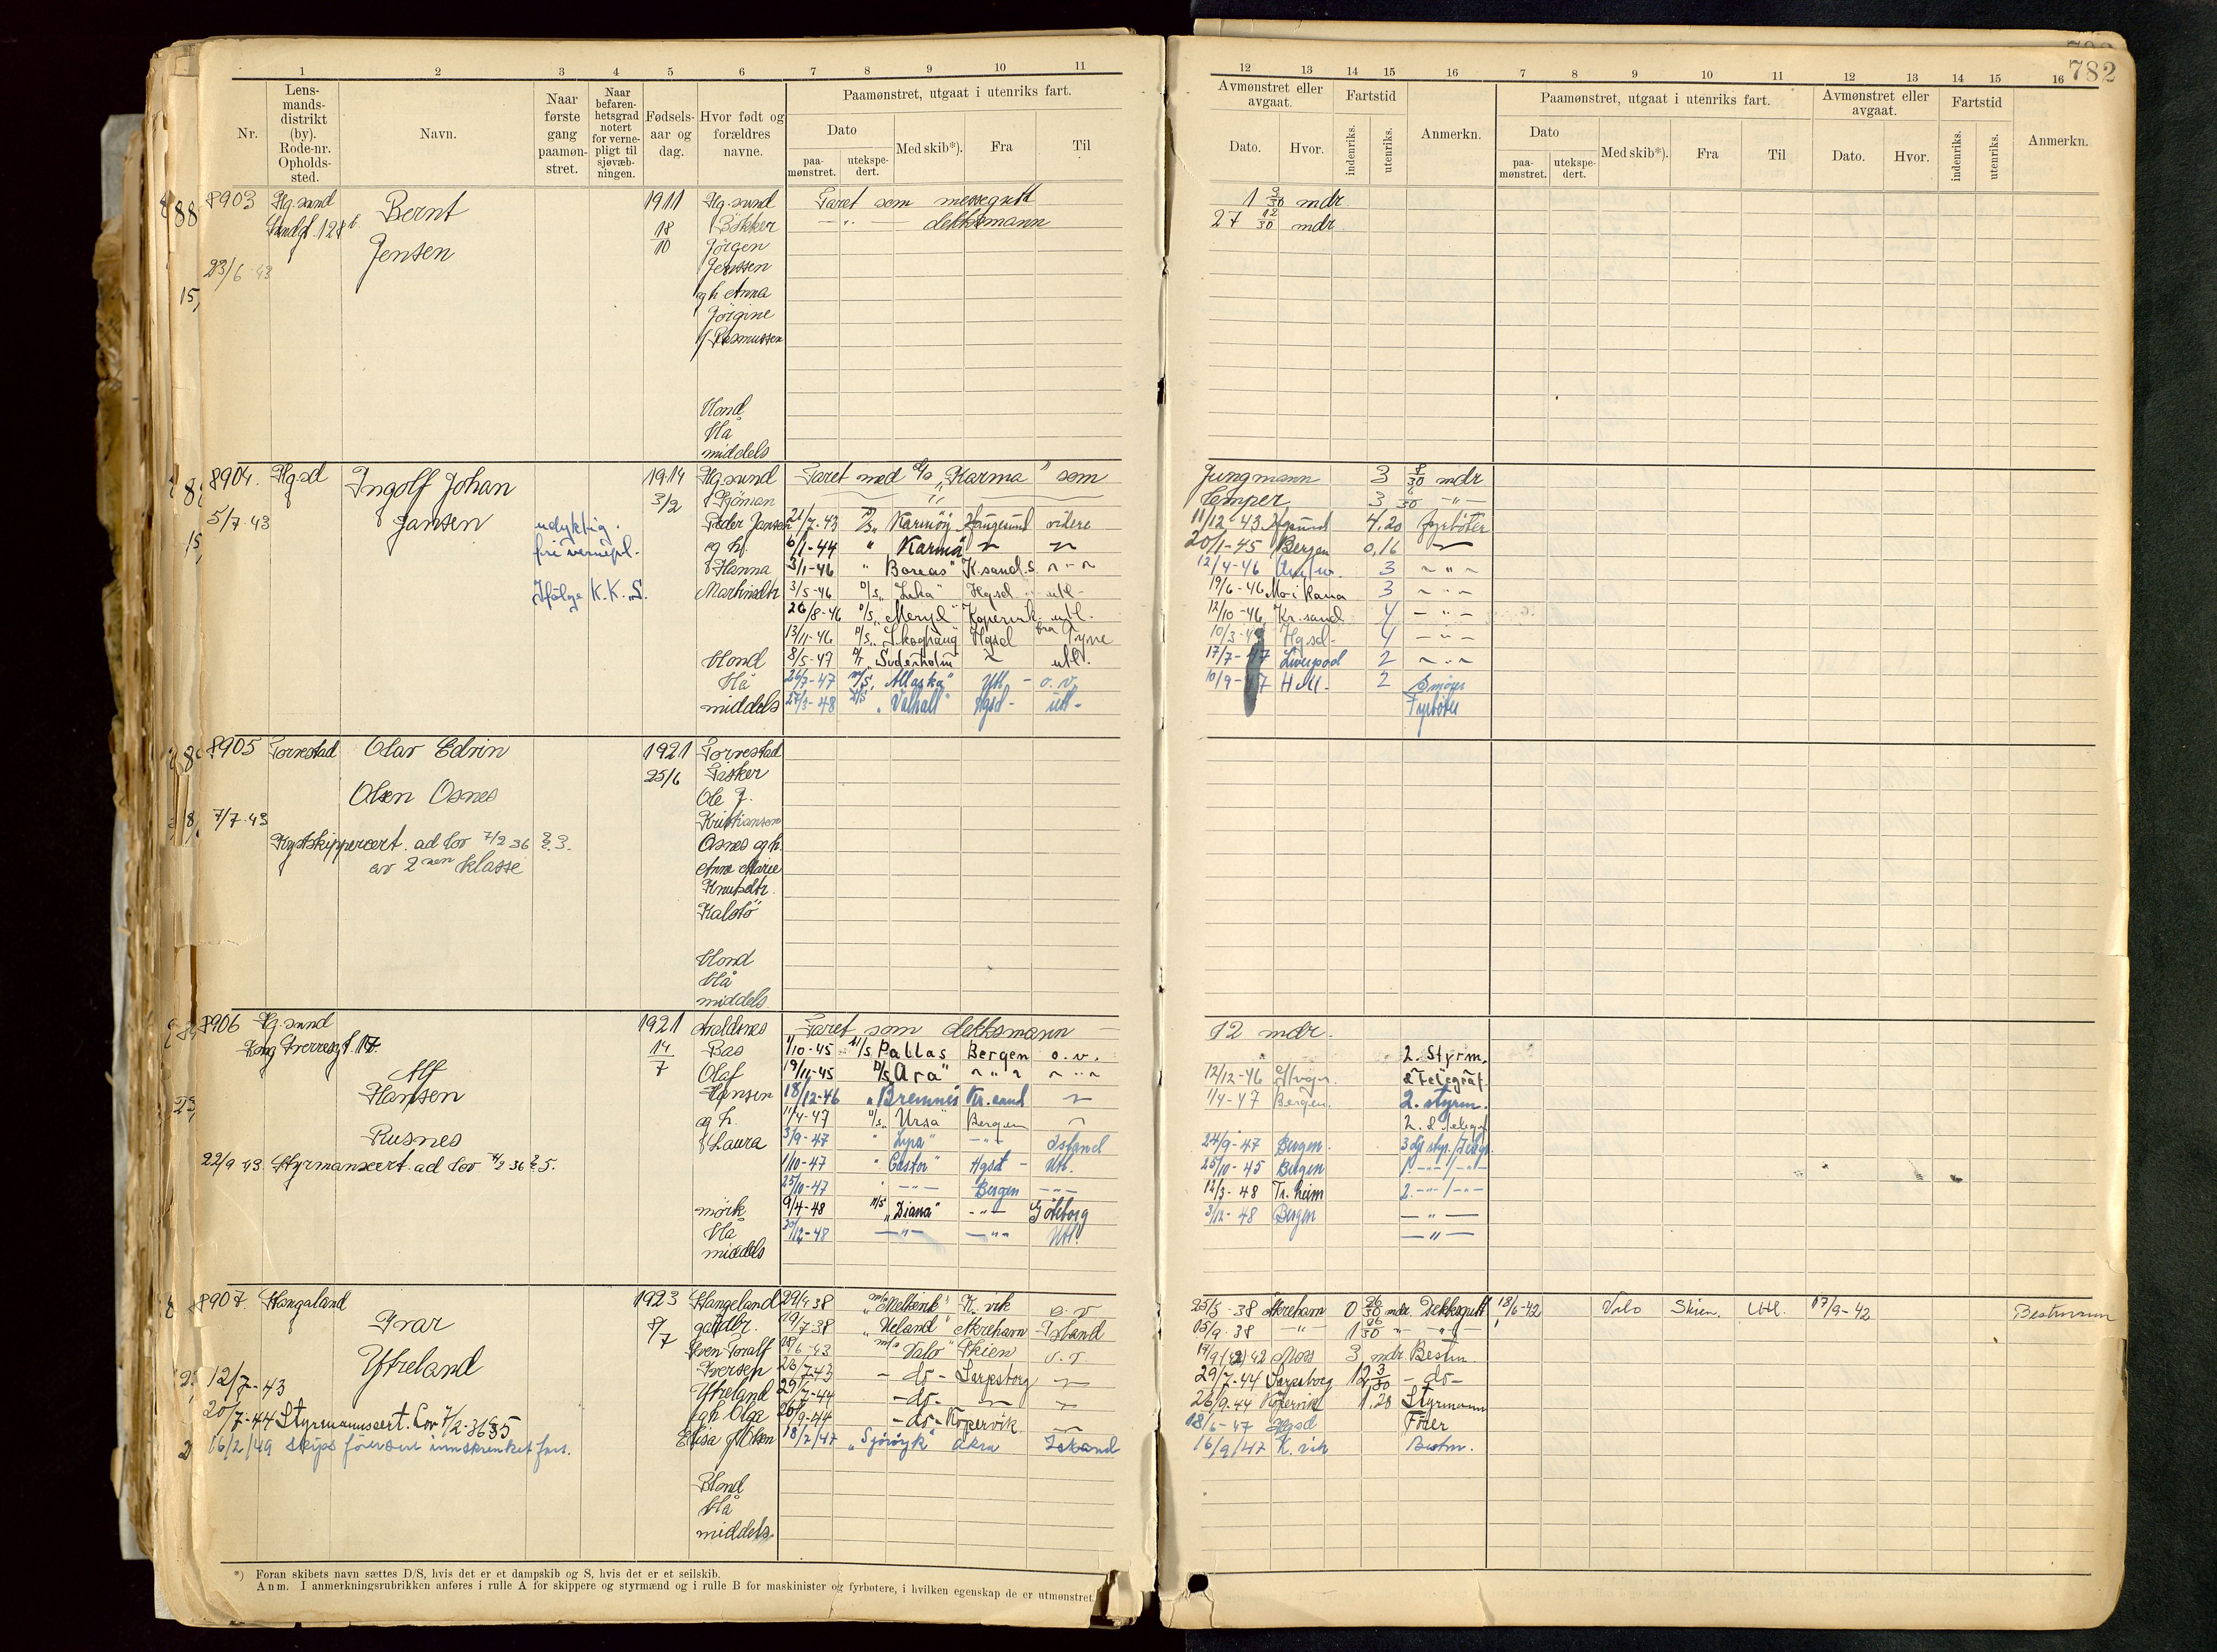 782
1 2 3 4 5 6 7 8 9 10 11
12 13 14 15 16 7 8 9 10 11 12 13 14 15 16
Nr.
Lens-
mands-
distrikt
(by).
Rode-nr.
Opholds-
sted.
Navn.
Naar
første
gang
paamøn-
stret.
Naar
befaren-
hetsgrad
notert
for verne-
pligt til
sjøvæb-
ningen.
Fødsels-
aar og
dag.
Hvor født og
forældres
navne.
Paamønstret, utgaat i utenriks fart.
Dato
paa-
mønstret.
utekspe-
dert.
Med skib*).
Fra
Til
Avmønstret eller
avgaat.
Dato.
Hvor.
Fartstid
indenriks.
utenriks.
Anmerkn.
Paamønstret, utgaat i utenriks fart.
Dato
paa-
mønstret.
utekspe-
dert.
Med skib*).
Fra
Til
Avmønstret eller
avgaat.
Dato.
Hvor.
Fartstid
indenriks.
utenriks.
Anmerkn.
8903 Hg.sund Bernt 1911 Hg.sund Faret som messegutt 1 9/30 mdr.
128b 18/10 Bökker —"— dekksmann 27 12/30 mdr.
Jensen Jörgen
23/6-43 Jenssen
og h. Anna
Jörgine
f. Rasmussen
blond
blå
middels
8904. Hg.sd Ingolf Johan 1914 Hg.sund Faret med d/s "Karma" som Jungmann 3 8/30 mdr
3/2 Lemper 3 6/30 —"—
5/7-43 Jansen udyktig. Peder Jansen 21/7-43 D/s "Karmöy Haugesund videre 11/12-43 Hgsund 4,20 fyrböter
fri vernepl. og h. 6/1-44 " Karma 20/1-45 Bergen 0,16
f. Hanna 3/1-46 " Boreas" K.sand.S. 12/4-46 3
Ifølge K.K.S. Martinsdtr 3/5-46 D/s "Leka" Hgsd utl- 19/6-46 Mo i Rana 3
26/8-46 D/s "Meryl" Kopervik utl. 12/10-46 Kr.sand 4
13/11-46 D/s Hgsd fra Tyne 10/3-47 Hgsd- 4
blond 8/5-47 "Suderholm" utl. 17/7-47 Liverpool 2
blå 26/7-47 m/s "Alaska" Utl - o.v. 10/9-47 Hull. 2 Smører
middels 27/3-48 D/s "Valhall" Hgsd- utl- Fyrbøter
8905 Torvestad Olav Edvin 1921 Torvestad
25/6 Fisker
Olsen Osnes Ole J.
7/7-43 Kristiansen
Kystskippercert. ad lov 7/2 36 § 3. Osnes og h.
av 2nen klasse Anne Marie
Knutsdtr.
Kalstö
blond
blå
middels
8906 Hg.sund 1921 Avaldsnes Faret som dekksmann 12 mdr.
Kong Sverresgt. 17. 14/7 Bas 1/10-45 M/S Pallas Bergen o.v. 2. Styrm.
Alf Olaf 19/11-45 D/s "Ara" 12/12-46 & Telegraf.
Hansen Hansen 18/12-46 "Bremnes Kr.sand 1/4-47 Bergen. 2. styrm.
og h. 11/4-47 D/s "Ursa" Bergen
Rusnes f. Laura 3/9-47 " Lyra" —"— Island 24/9-47 Bergen
22/9 43. Styrmanscert. ad lov 7/2 36 § 5. 1/10-47 " Castor" Hgsd - Utl. 25/10-45 Bergen
25/10-47 " —"— Bergen —"— 12/3-48 Tr.heim
mörk 9/4-48 M/S "Diana" —"— Göteborg 3/12-48 Bergen —"—
blå 30/12-48 —"— —"— Utl. —"—
middels
8907. Hangaland 1923 Hangeland 29/4 38 K.vik o.v 25/5-38 Akrehamn 0 26/30 mdr. Dekksgutt 18/6-42 Valo Skien. Utl. 17/9-42 Bestmann
Ivar 8/7 gårdbr. 19/7-38 "Ueland" Akrehavn Island 15/9-38 —"— 1 26/30 " —"—
Sven Toralf 18/6-43 m/s "Valo" Skien 42 Moss 3 mdr. Bestm.
Ytreland Iversen 26/7-43 - do - Sarpsborg 29/7-44 Sarpsborg 12 3/30 - do -
12/7-43 Ytreland 29/7-44 - do - 26/9-44 Kopervik 1.28 Styrmann
20/7-44 Styrmannscert. lov 7/2-36 § 5 og h. Olga 26/9-44 - do - Kopervik 18/6-47 Hgsd Fører
16/2/49 skipsförercert innskrenket fart. Elisa f. Olsen 18/7/47 Åkra Island 16/9/47 K.vik Bestm.
Blond
blå
middels.
*) Foran skibets navn sættes D/S, hvis det er et dampskib og S, hvis det er et seilskib.
Anm. I anmerkningsrubrikken anføres i rulle A for skippere og styrmænd og i rulle B for maskinister og fyrbøtere, i hvilken egenskap de er utmønstret.